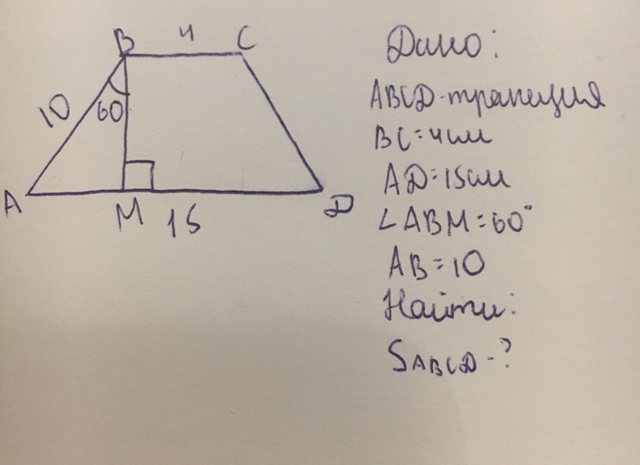 B 4 C
10 60
A M 15 D
Дано:
ABCD-трапеция
BC=4см
AD=15см
∠ABM=60°
AB=10
Найти:
SABCD-?